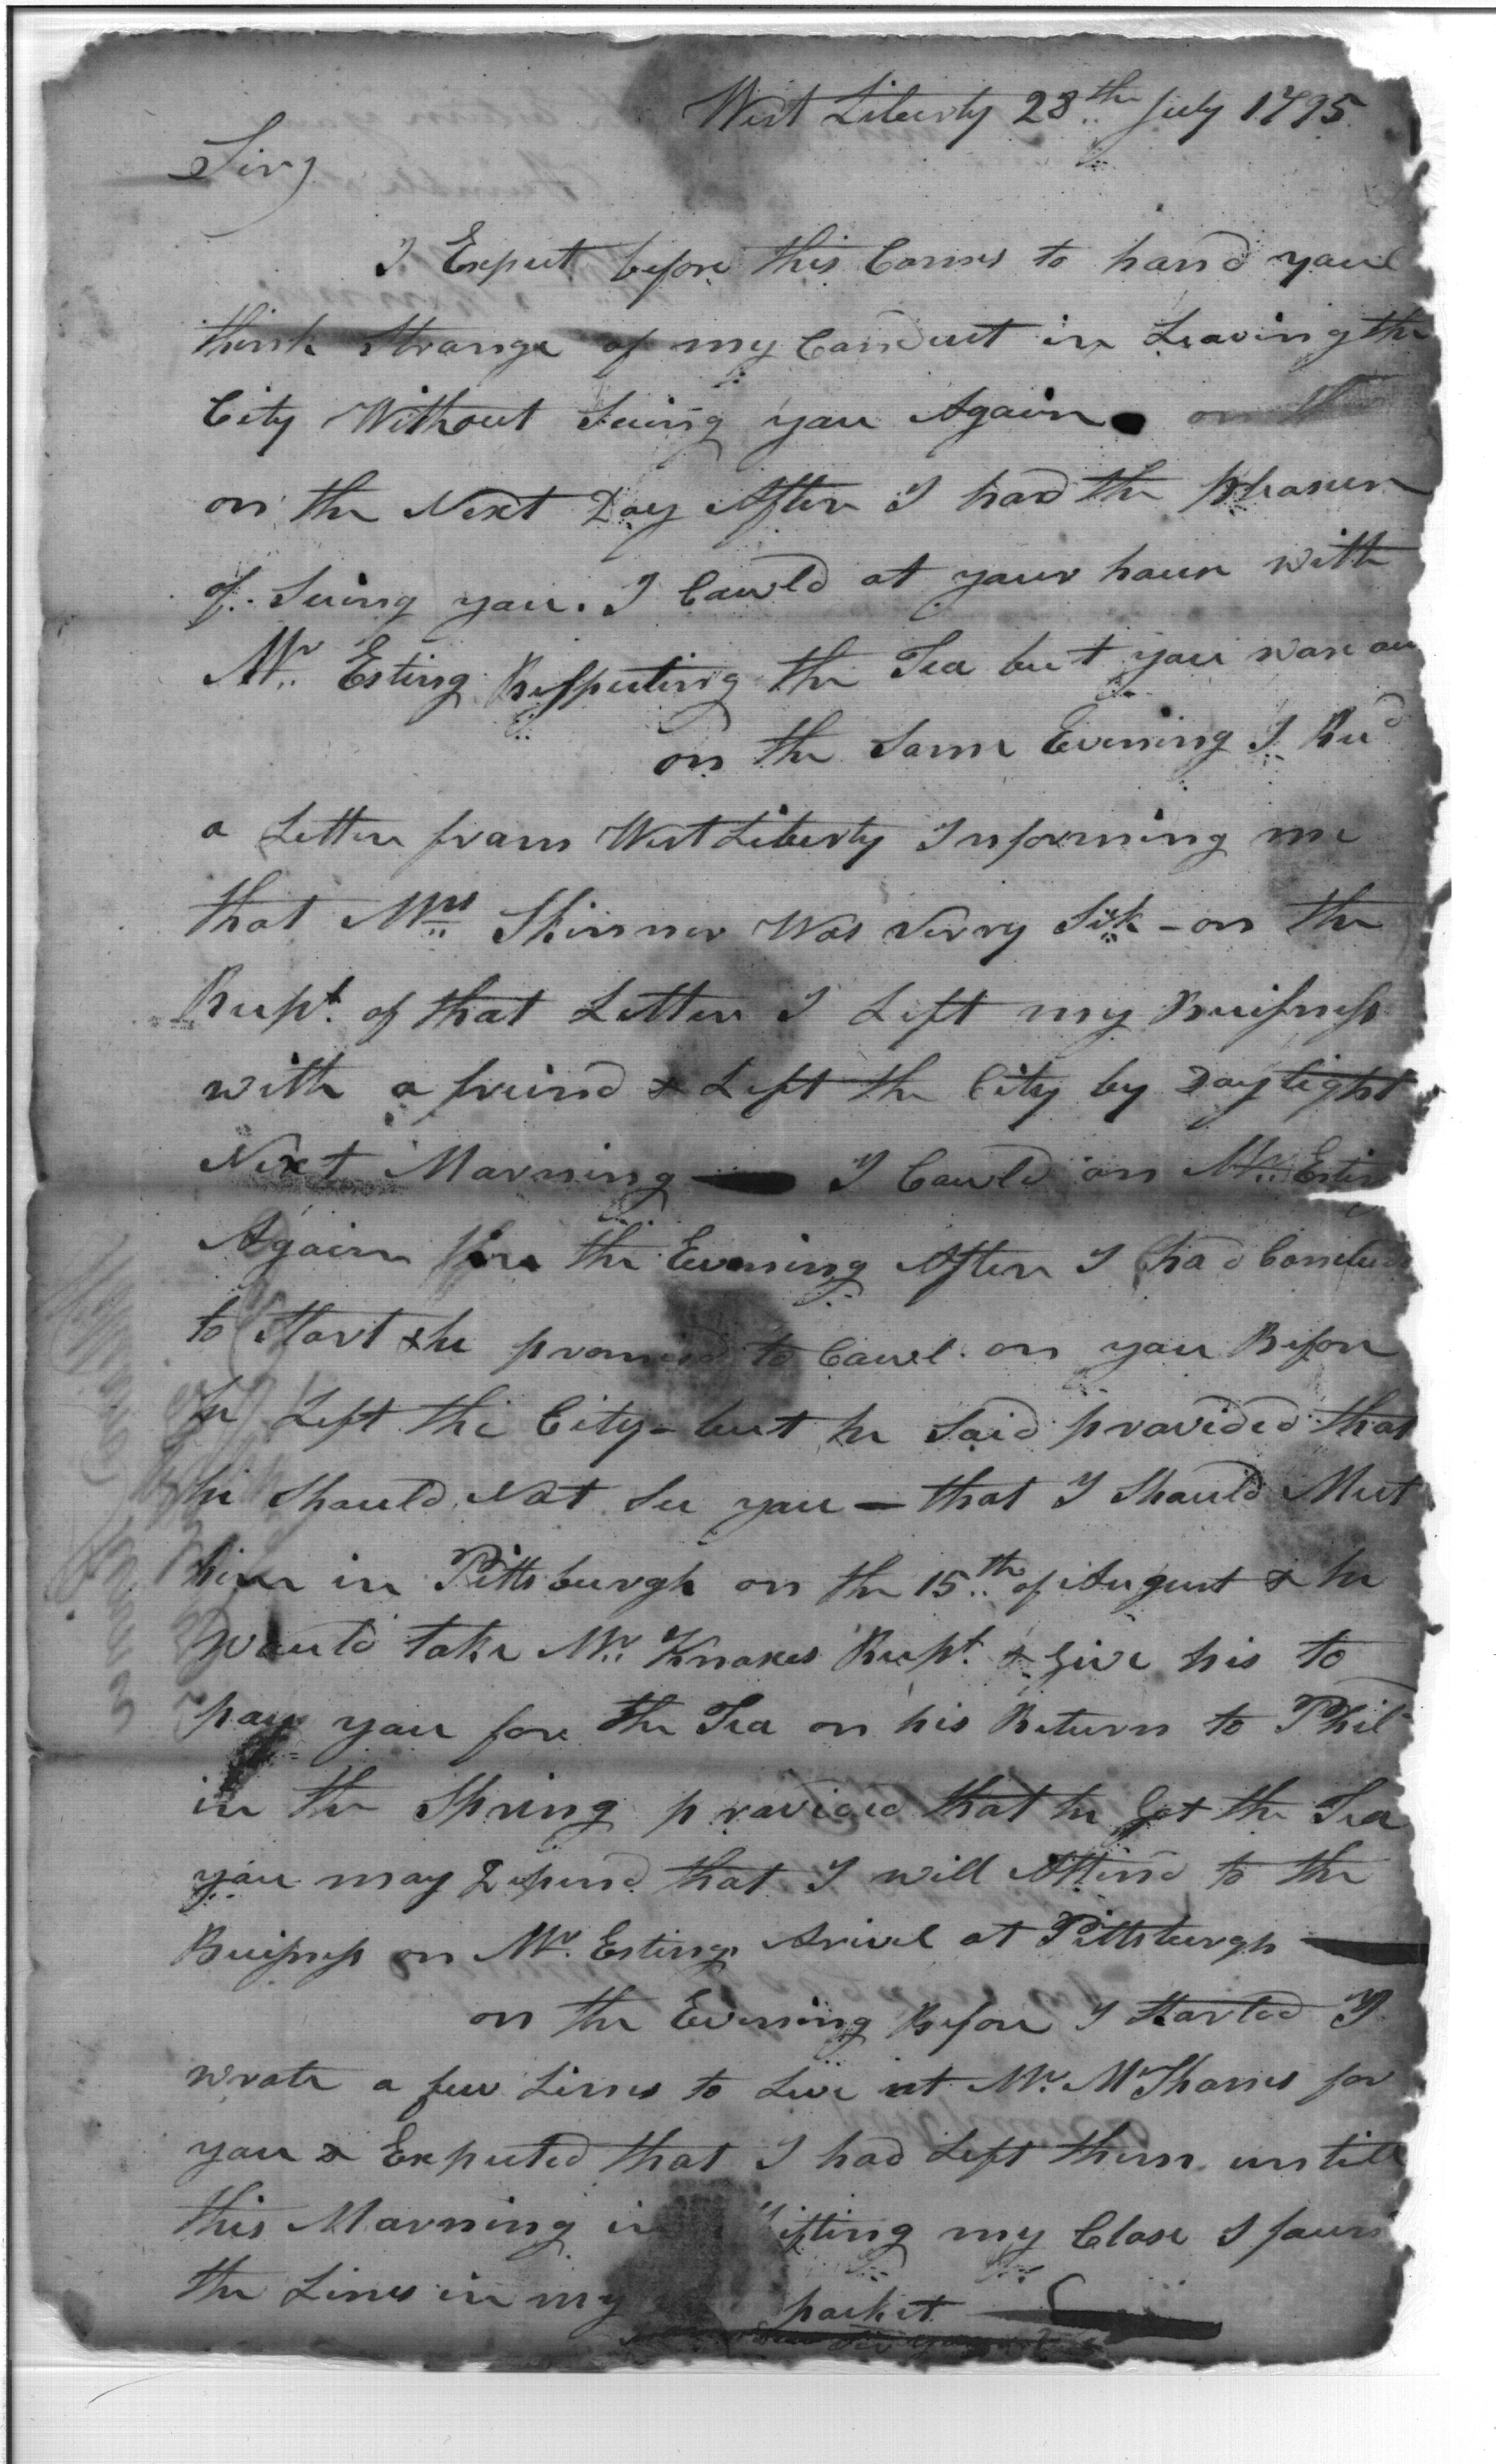 West Liberty 28th July 1795
Sir,
I Expect before this Comes to hand youl
think strange of my Conduct in Leaving the
City Without Seeing you Again on
on the Next Day After I had the pleasure
of Seeing you. I Cauld at your house with
Mr. Esting Respecting the Tea but you ware
on the Same Evening I Recd
a Letter from West Liberty Informing me
that Mrs Skinner Was verry Sick - on the
Recpt. of that Letter I Left my Buissness
with a freind & Left the City by Day light
Next Morning — I Cauld on Mr. Estin
Again the Evening After I had Conclud
to Start & he promised to Cawl on you Before
he Left the City - but he Said provided that
he Should Not See you — that I Should Meet
him in Pittsburgh on the 15th of August & he
would take Mr. Knoxes Recpt. & Give his to
pay you fore the Tea on his Return to Phil
in the Spring provided that he Got the Tea
you may Depend that I will Attend to the
Buissness on Mr. Estings Arivel at Pittsburgh —
on the Evening Before I Started I
wrote a few Lines to Live at Mr. McShanes for
you & Expected that I had Left them untill
this Morning in my Close I foun
the Lines in my pocket —